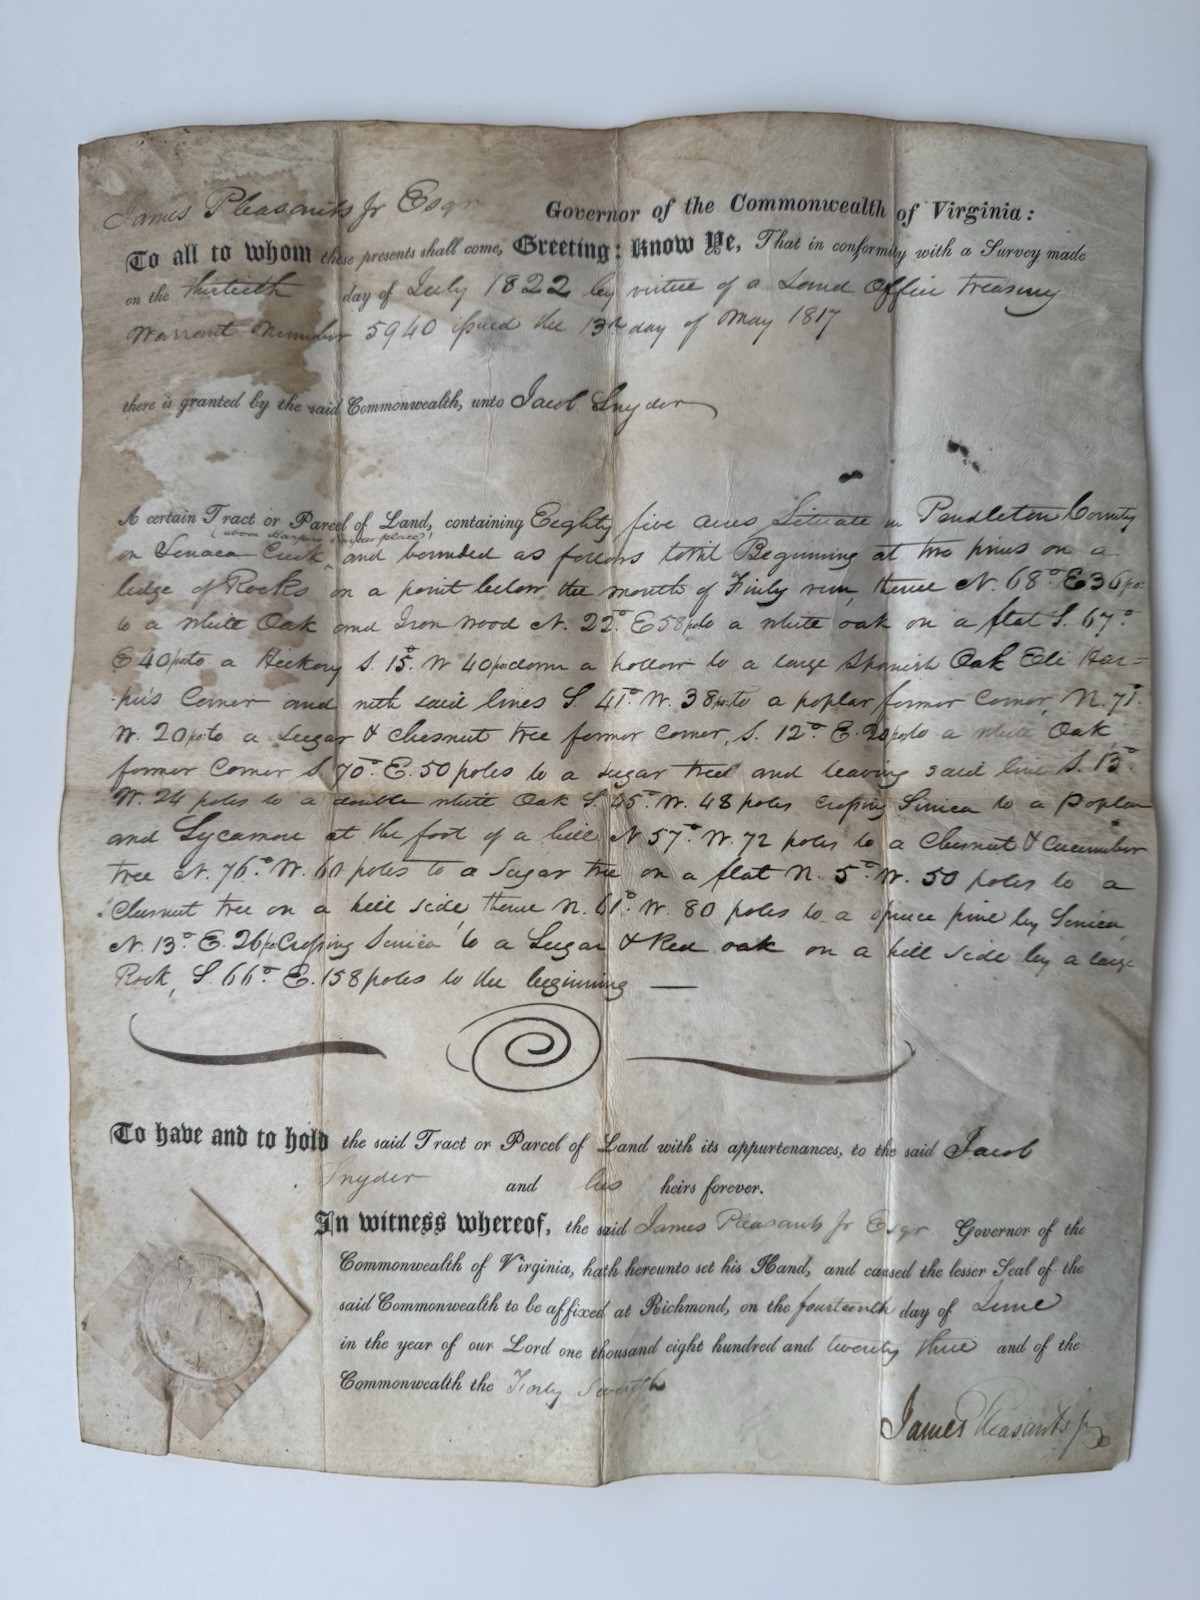 James Pleasants Jr Esqr Governor of the Commonwealth of Virginia:
To all to whom these presents shall come, Greeting: Know Ye, That in conformity with a Survey made
on the thirtieth day of July 1822 by virtue of a Land Office Treasury
Warrant Number 5940 issued the 13th day of May 1817
there is granted by the said Commonwealth, unto Jacob Snyder
A certain Tract or Parcel of Land, containing Eighty five acres Situate in Pendleton County
(above Harpers Sugar place)
on Senaca Creek and bounded as follows towit Beginning at two pines on a
ledge of Rocks on a point below the mouth of Finly run, thence N. 68° E 36 po:
to a white Oak and Iron wood N. 22° E 58 po to a white oak on a flat S. 67°
E 40 po to a Hickory S. 15° W 40 po down a hollow to a large Spanish Oak Eli Har=
per's Corner and with said lines S. 41° W. 38 po. to a poplar former Corner, N. 71°
W. 20 po to a Sugar & Chesnut tree former Corner, S. 12° E. 20 po to a white Oak
former Corner S 70° E. 50 poles to a sugar tree and leaving said line S. 13°
W. 24 poles to a double white Oak S. 45° W. 48 poles crossing Sinica to a Poplar
and Sycamore at the foot of a hill N 57° W. 72 poles to a Chesnut & Cucumber
tree N. 76° W. 60 poles to a Sugar tree on a flat N. 5° W. 50 poles to a
Chesnut tree on a hill side thence N. 61° W. 80 poles to a spruce pine by Sinica,
N. 13° E. 26 po Crossing Sinica to a Sugar & Red oak on a hill side by a large
Rock, S. 66° E. 158 poles to the beginning —
To have and to hold the said Tract or Parcel of Land with its appurtenances, to the said Jacob
Snyder and his heirs forever.
In witness whereof, the said James Pleasants Jr Esqr Governor of the
Commonwealth of Virginia, hath hereunto set his Hand, and caused the lesser Seal of the
said Commonwealth to be affixed at Richmond, on the fourteenth day of June
in the year of our Lord one thousand eight hundred and twenty three and of the
Commonwealth the Forty Seventh
James Pleasants jr